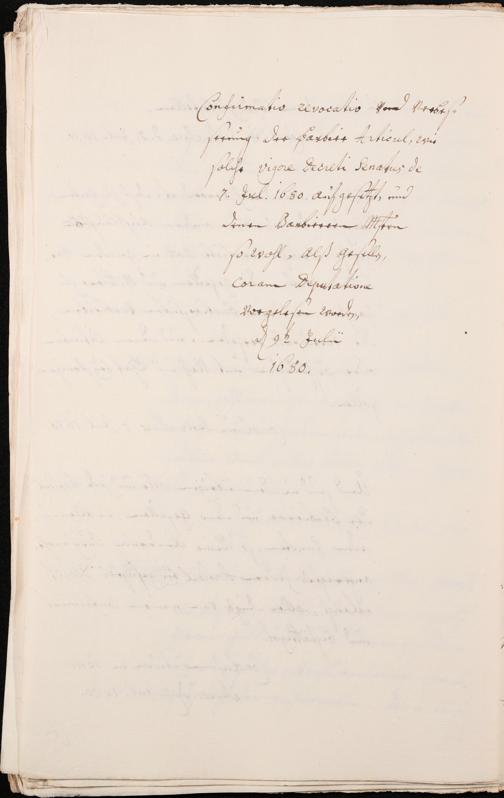 Confirmatio revocatio vnnd Verbes-
serung der Barbirer Articul, wie
solche vigore Decreti Senatus de
7. Jul. 1650. auffgesetzt, und
denen Barbierern Mstrn
so wohl, alß gesellen,
coram Deputatione
vorgelesen worden,
Julii
1650.